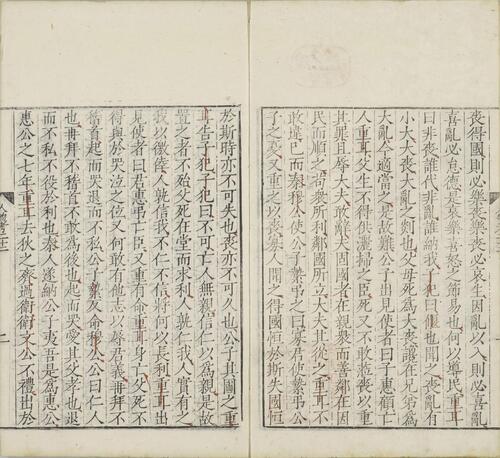 喪得國則必樂喪樂喪必哀生因亂以入則必喜
喜亂必怠德是哀樂喜怒之節易也何以導民重耳
曰非喪誰代非亂誰納我子犯曰偃也聞之喪亂有
小大大喪大亂之剡也父母死為大喪讒在兄弟為
大亂今適當之是故難公子出見使者曰子惠顧亡
人重耳父生不得供備灑掃之臣死又不敢蒞喪以重
其罪且辱大夫敢辭夫固國者在親衆而善鄰在因
民而順之苟衆所利鄰國所立大夫其從之重耳不
敢違已而秦穆公使公子縶弔之曰寡君使縶弔公
子之憂又重之以喪寡人聞之得國恒於斯失國恒
於斯時亦不可失也喪亦不可久也公子其圖之重
耳告子犯子犯曰不可亡人無親信仁以為親是故
置之者不殆父死在堂而求利人孰仁我人實有之
我以徼倖人孰信我不仁不信將何以長利重耳出
見使者曰君惠弔亡臣又重有命重耳身亡父死不
得與於哭泣之位又何敢有他志以辱君義再拜不
稽首起而哭退而不私公子縶反命穆公公曰仁人
也再拜不稽首不敢為後也起而哭愛其父孝也退
而不私不役於利也秦人遂納公子夷吾是為惠公
惠公之七年重耳去狄之齊過衛衛文公不禮出於